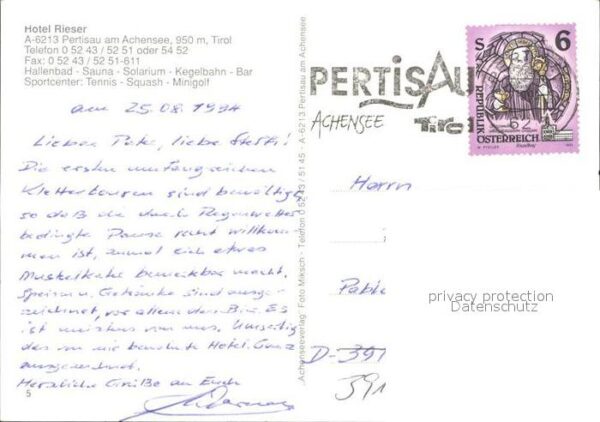 Hotel Rieser
A-6213 Pertisau am Achensee, 950 m, Tirol
Telefon 0 52 43 / 52 51 oder 54 52
Fax: 0 52 43 / 52 51-611
Hallenbad - Sauna - Solarium - Kegelbahn - Bar
Sportcenter: Tennis - Squash - Minigolf
am 25.08.1994
Lieber Pate, liebe Steffi!
Die ersten umfangreichen
Klettertouren sind bewältigt
so daß die durch Regenwetter
bedingte Pause recht willkom-
men ist, zumal sich etwas
Muskelkater bemerkbar macht.
Speisen u. Getränke sind ausge-
zeichnet, vor allem das Bier. Es
ist
das von mir bewohnte Hotel. Ganz
ausgezeichnet.
Herzliche Grüße an Euch
5
Achenseeverlag · Foto Miksch · A-6213 Pertisau am Achensee
Telefon 0 52 43 / 51 45
PERTISAU
ACHENSEE
Tirol
6
REPUBLIK
ÖSTERREICH
Herrn
Pable
privacy protection
Datenschutz
D-391
391